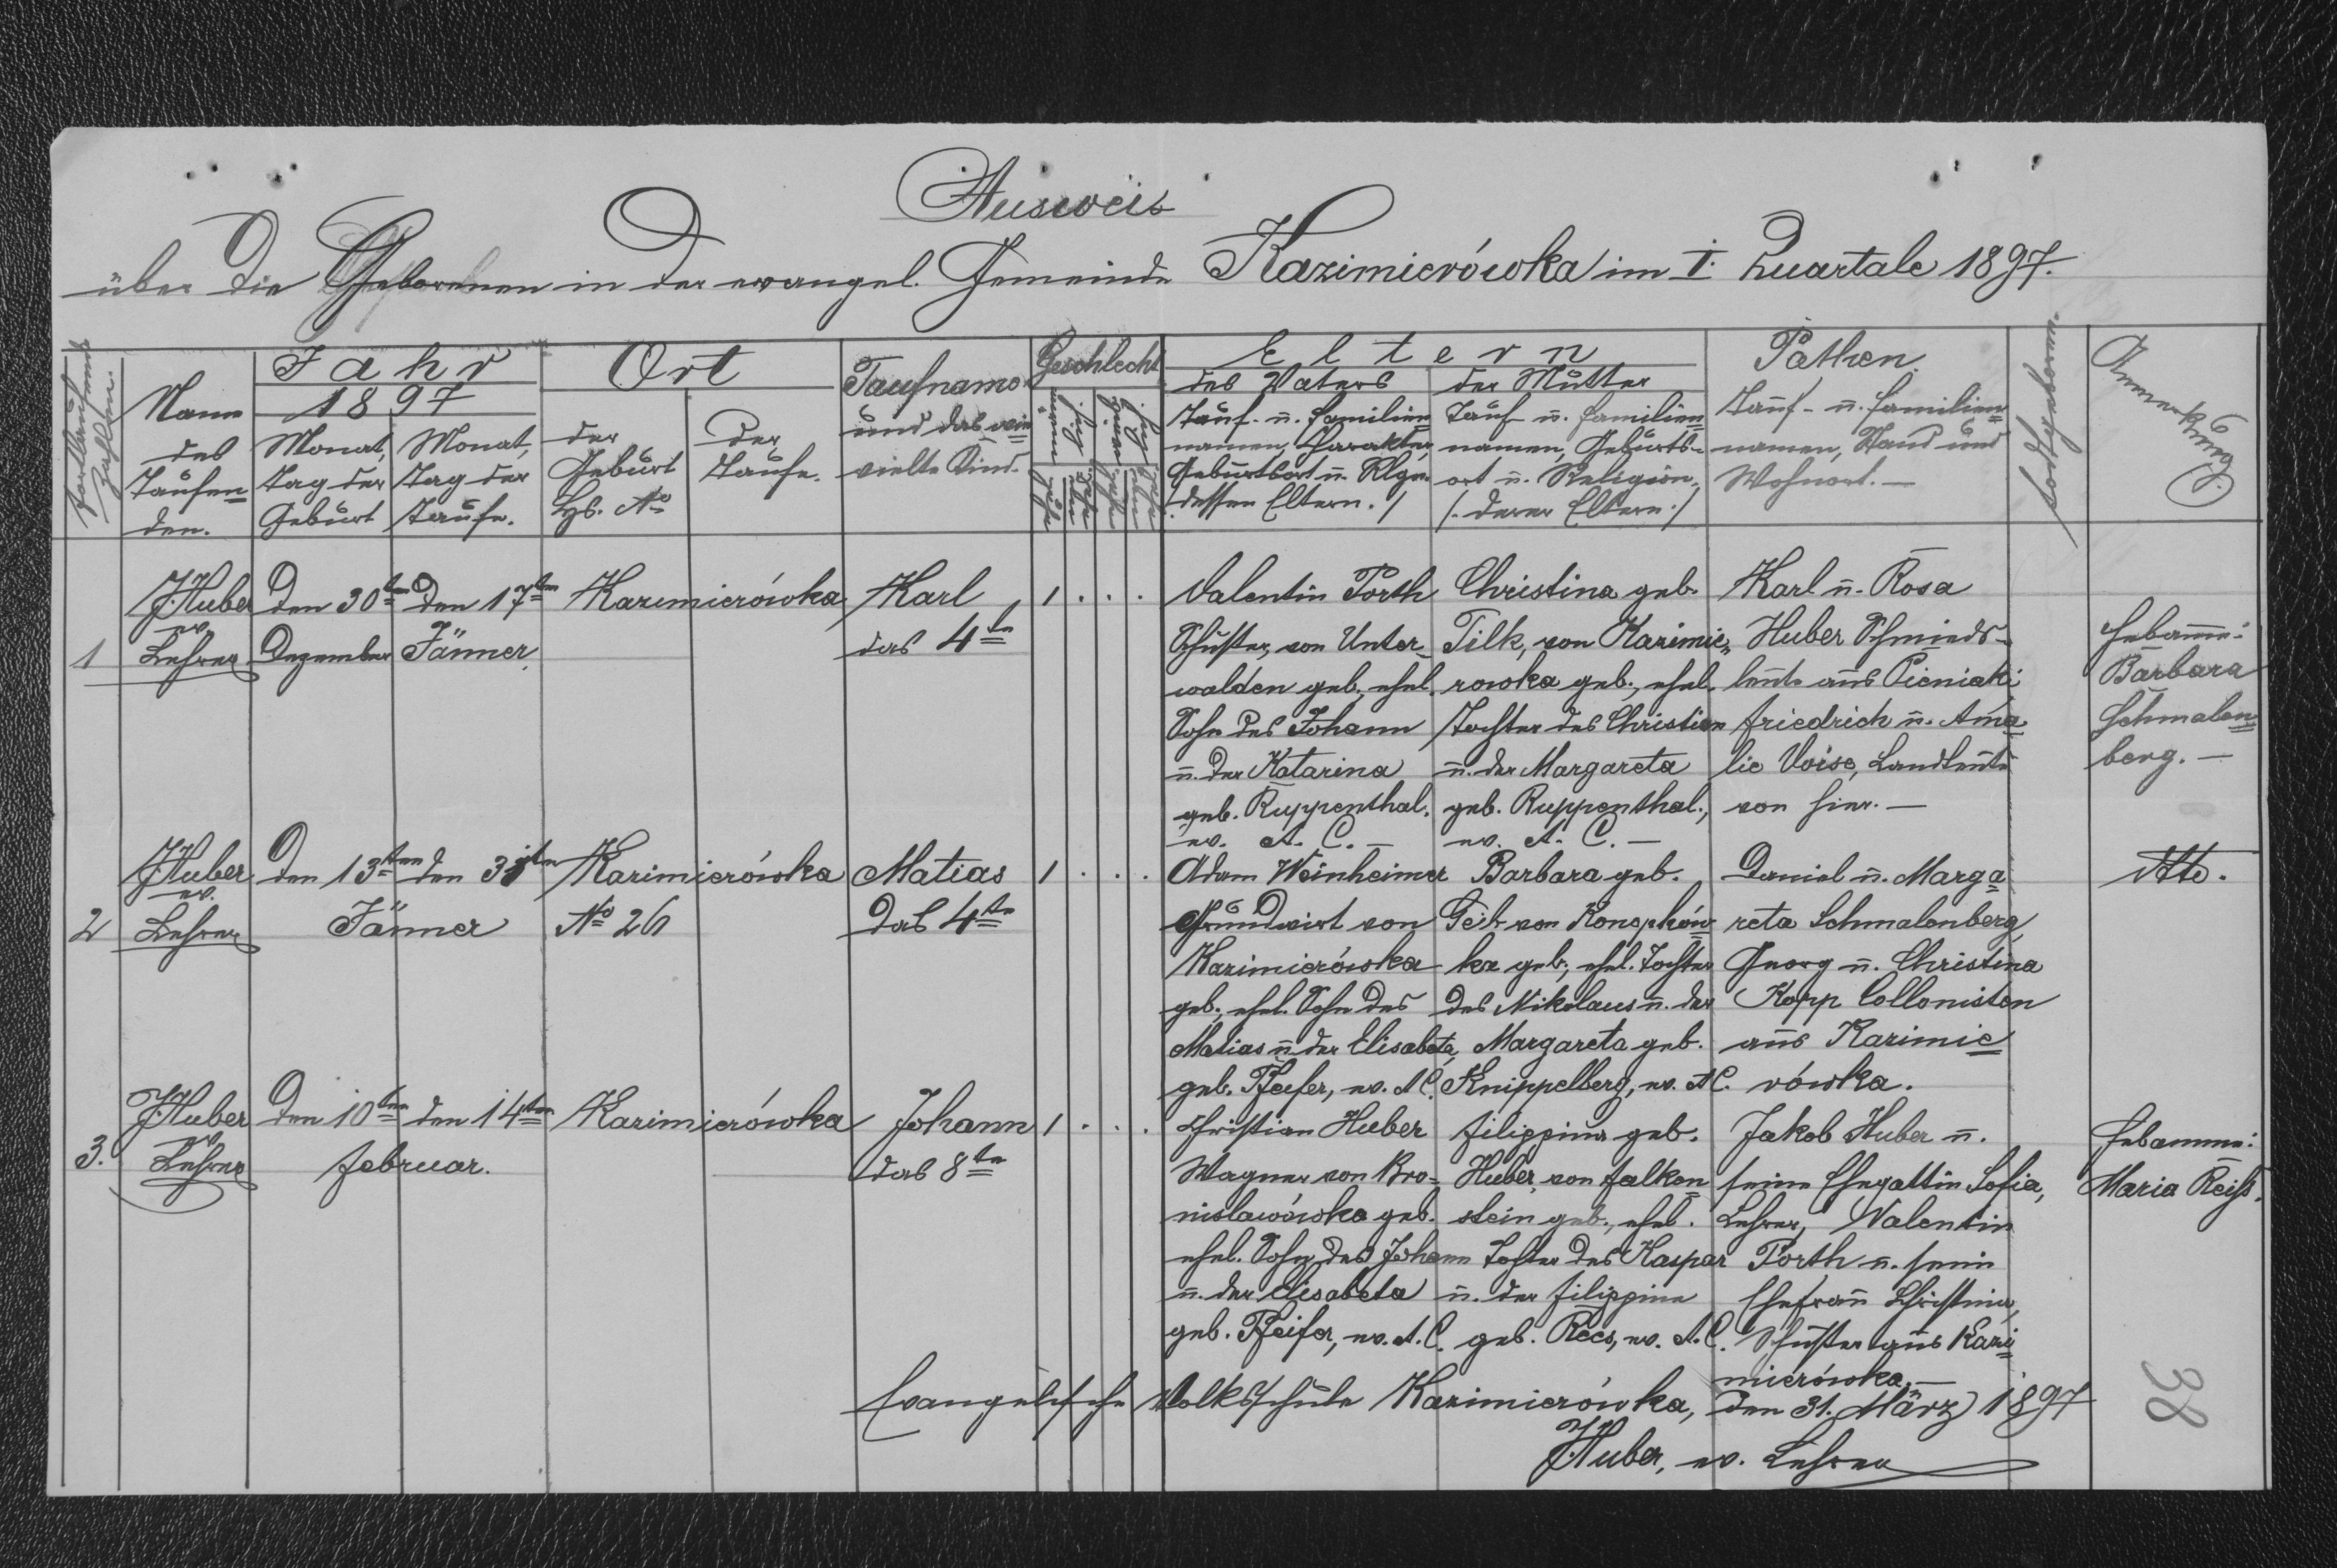 Ausweis
über die Geborenen in der evangel. Gemeinde Kazimierówka im I. Quartale 1897.
Fortlaufende Zahlen.
Name
des
Taufen=
den.
Jahr
1897
Monat,
Tag der
Geburt
Monat,
Tag der
Taufe.
Ort
der
Geburt
Hs. No
der
Taufe.
Taufname
und das wie
vielte Kind.
Geschlecht
Eltern
des Vaters
Tauf- u. Familien=
namen, Charakter,
Geburtsort u. Rlgn.
dessen Eltern./
der Mutter
Tauf- u. Familien=
namen, Geburts-
ort u. Religion,
/. derer Eltern ./
Pathen.
Tauf- u. Familien=
namen, Stand und
Wohnort. —
Todtgeboren.
Anmerkung.
1
J.Huber
ev.
Lehrer
Den 30ten
Dezember
Den 17ten
Jänner
Kazimierówka
Karl
das 4te
1 . . .
Valentin Porth
Schuster, von Unter-
walden geb., ehel.
Sohn des Johann
u. der Katarina
geb. Ruppenthal.
ev. A. C. —
Christina geb.
Tilk, von Kazimie=
rowka geb., ehel.
Tochter des Christian
u. der Margareta
geb. Ruppenthal.,
ev. A. C. —
Karl u. Rosa
Huber Schmieds-
leute aus Pieniaki
Friedrich u. Ama=
lie Voise, Landleute
von hier. —
Hebamme:
Barbara
Schmalen=
berg. —
2
J.Huber
ev.
Lehrer
Den 13ten den 31ten
Jänner
Kazimierówka
No 26
Matias
Das 4te
1 . . .
Adam Weinheimer
Grundwirt von
Kazimierówka
geb., ehel. Sohn des
Matias u. der Elisabeta
geb. Pfeifer, ev. A C.
Barbara geb.
Geib von Konopków=
ka geb., ehel. Tochter
des Nikolaus u. der
Margareta geb.
Knippelberg, ev. A C.
Daniel u. Marga=
reta Schmalenberg,
Georg u. Christina
Kopp Collonisten
aus Kazimie=
rówka.
dtto.
3.
J.Huber
ev.
Lehrer
Den 10ten den 14ten
Februar.
Kazimierówka
Johann
das 8te
1 . . .
Christian Huber
Wagner von Bro-
nislawówka geb.
ehel. Sohn des Johann
u. der Elisabeta
geb. Pfeifer, ev. A. C.
Filippina geb.
Huber, von Falken=
stein geb., ehel.
Tochter des Kaspar
u. der Filippina
geb. Rees, ev. A. C.
Jakob Huber u.
seine Ehegattin Sofia,
Lehrer, Walentin
Porth u. seine
Ehefrau Christina,
Schuster aus Kazi=
mierówka. —
Hebamme:
Maria Reiß.
Evangelische Volksschule Kazimierówka, den 31. März 1897
J.Huber, ev. Lehrer
38